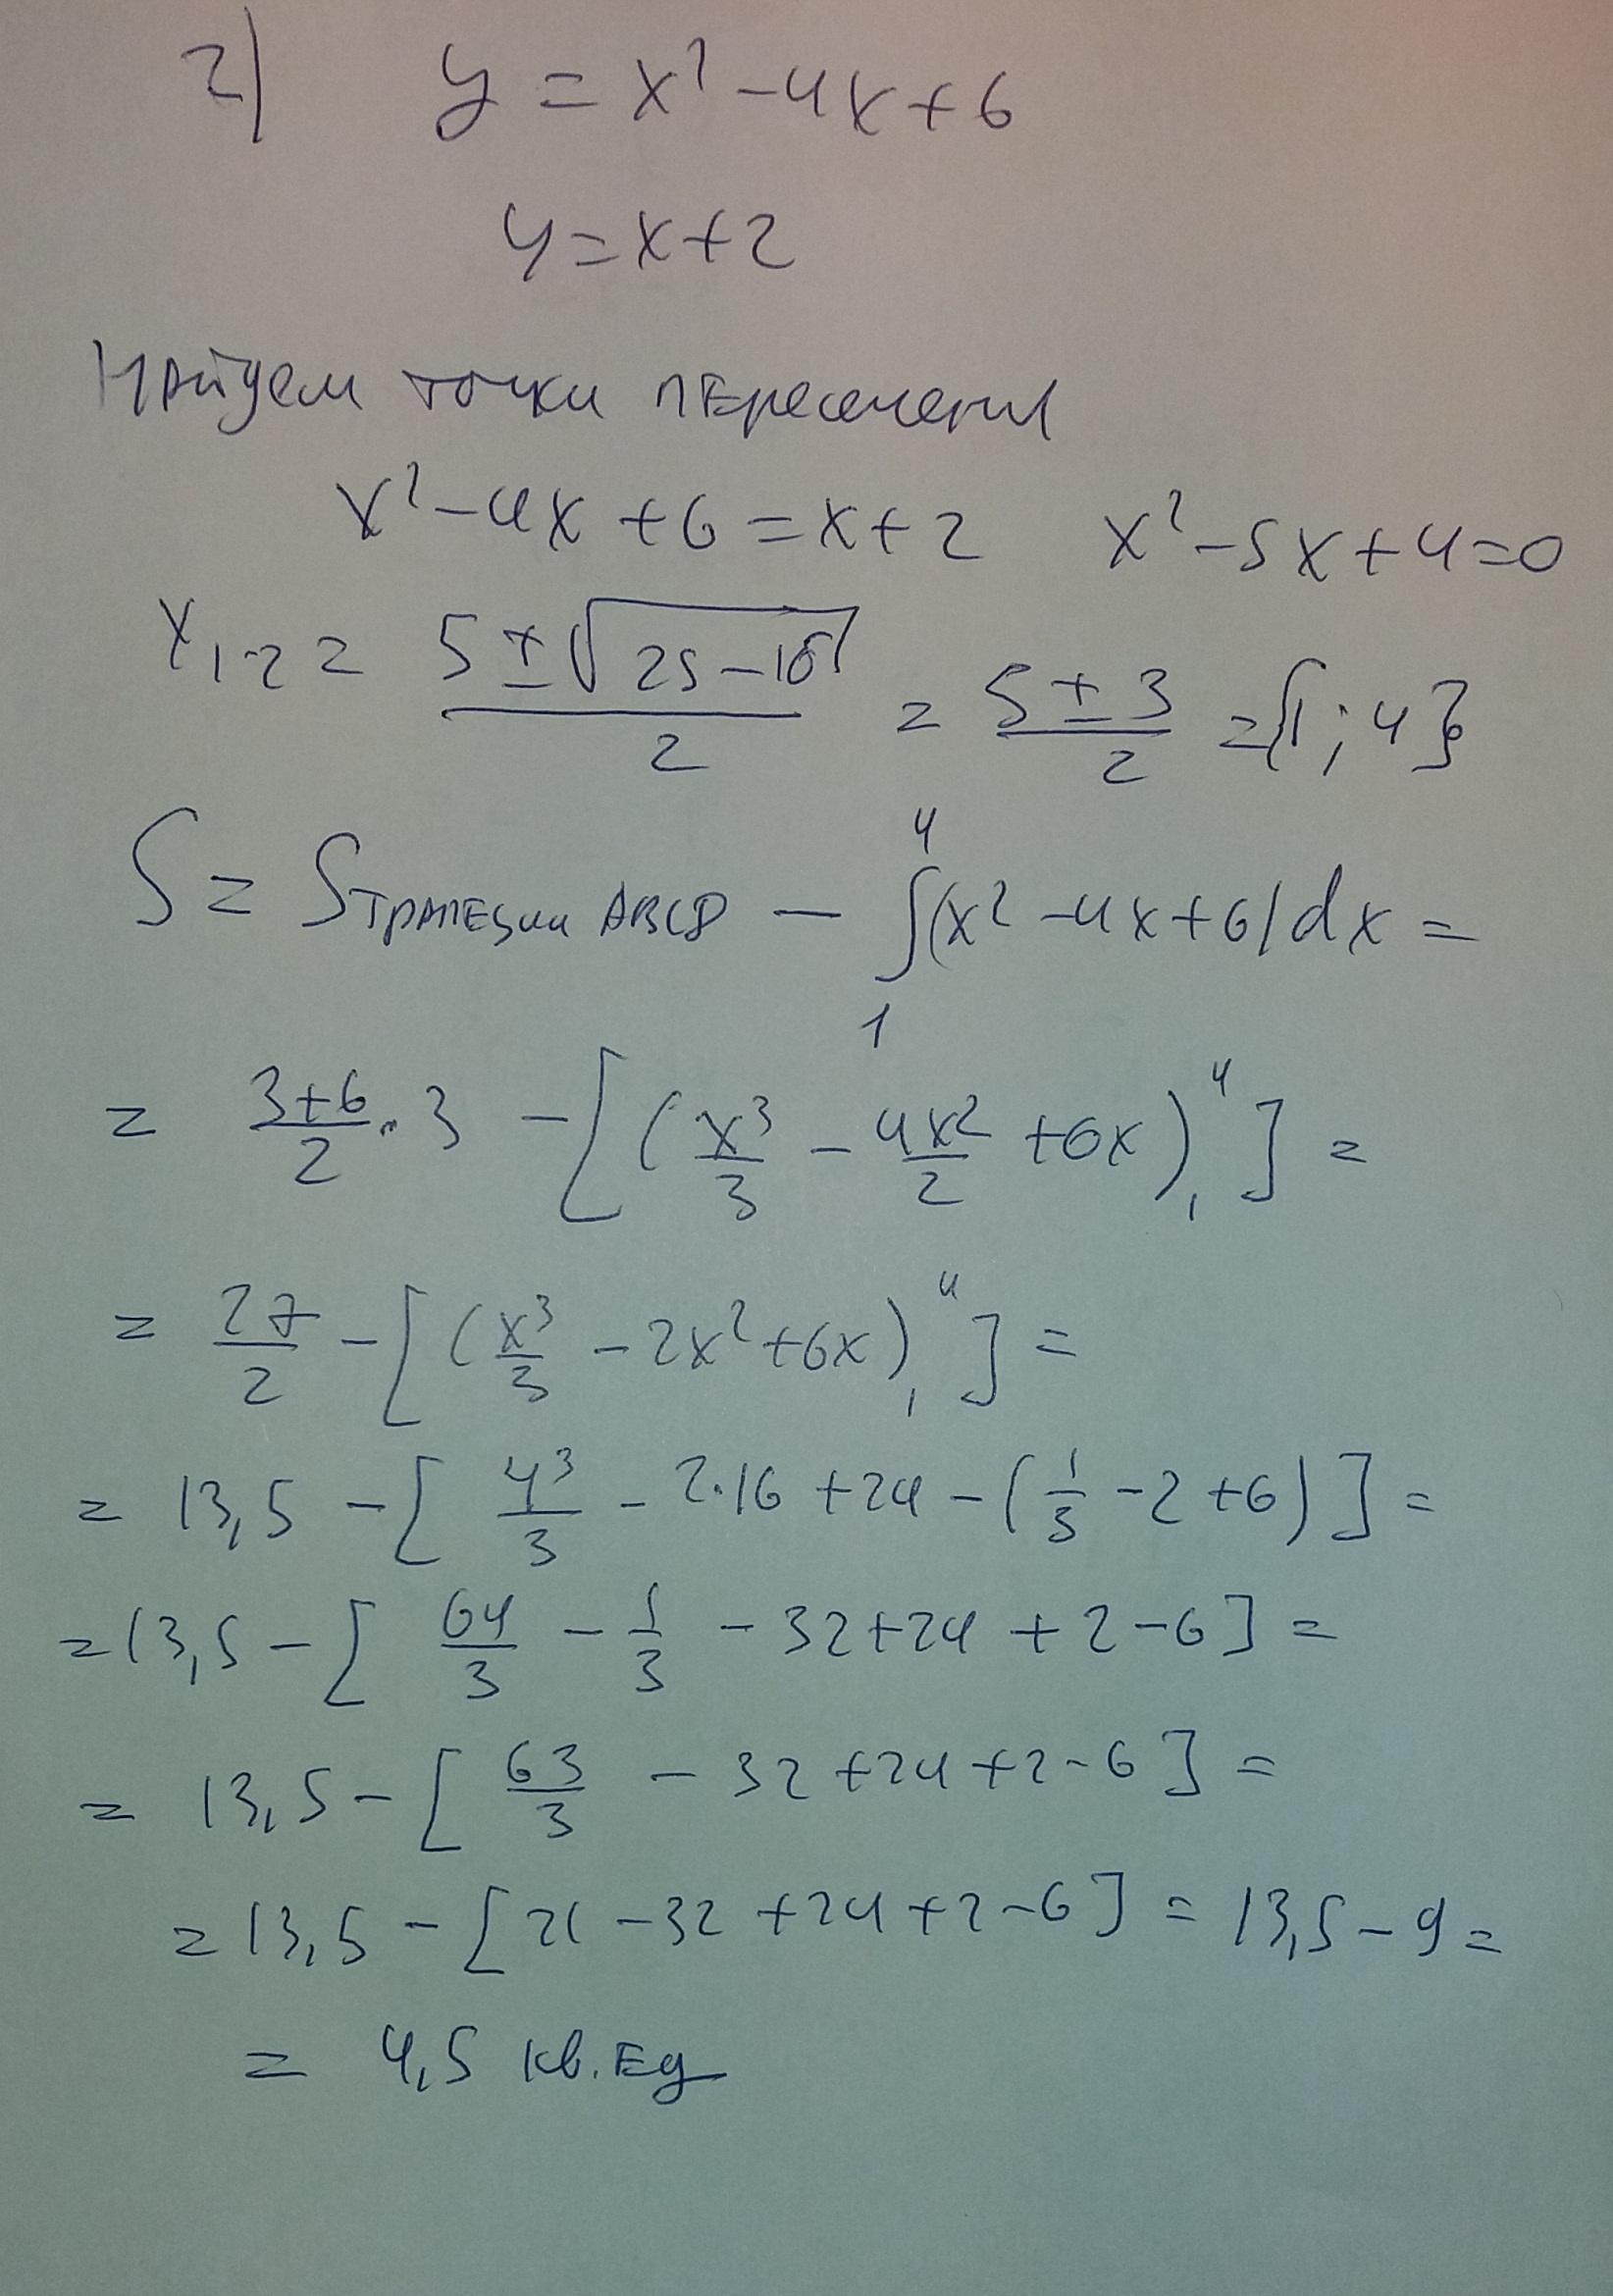 2) y = x² - 4x + 6
y = x + 2
Найдем точки пересечения
x² - 4x + 6 = x + 2   x² - 5x + 4 = 0
x₁,₂ = (5 ± √(25 - 16))/2 = (5 ± 3)/2 = {1; 4}
S = Sтрапеции ABCD - ∫₁⁴(x² - 4x + 6)dx =
= (3+6)/2 · 3 - [(x³/3 - 4x²/2 + 6x)₁⁴] =
= 27/2 - [(x³/3 - 2x² + 6x)₁⁴] =
= 13,5 - [4³/3 - 2·16 + 24 - (1/3 - 2 + 6)] =
= 13,5 - [64/3 - 1/3 - 32 + 24 + 2 - 6] =
= 13,5 - [63/3 - 32 + 24 + 2 - 6] =
= 13,5 - [21 - 32 + 24 + 2 - 6] = 13,5 - 9 =
= 4,5 кв. ед